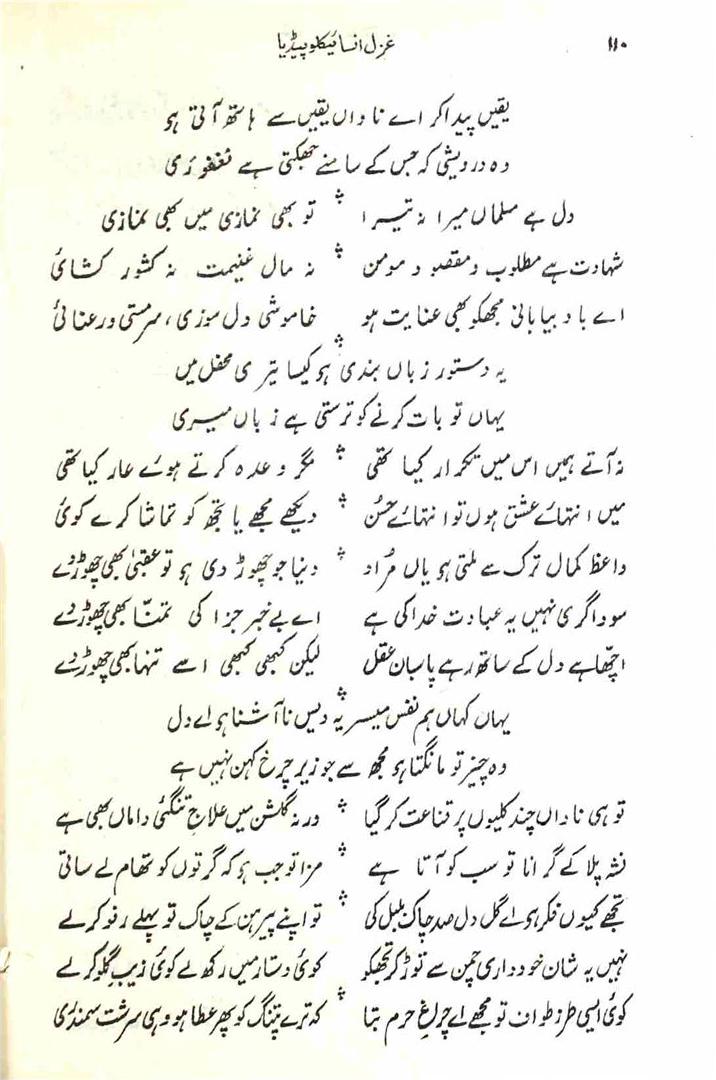 ۱۱۰ غزل انسائیکلوپیڈیا
یقیں پیدا کر اے ناداں یقیں سے ہاتھ آتی ہو
وہ درویشی کہ جس کے سامنے جھکتی ہے فغفوری
دل ہے مسلماں میرا نہ تیرا تو بھی نمازی میں بھی نمازی
شہادت ہے مطلوب و مقصود مومن نہ مال غنیمت نہ کشور کشائی
اے باد بیابانی مجھکو بھی عنایت ہو خاموشی دل سوزی، سرمستی ورعنائی
یہ دستور زباں بندی ہو کیسا تیری محفل میں
یہاں تو بات کرنے کو ترستی ہے زباں میری
نہ آتے ہمیں اس میں تکرار کیا تھی مگر وعدہ کرتے ہوئے عار کیا تھی
میں انتہائے عشق ہوں تو انتہائے حسُن دیکھے مجھے یا تجھ کو تماشا کرے کوئی
داعظ کمال ترک سے ملتی ہو یاں مُراد دنیا جو چھوڑ دی ہو تو عقبیٰ بھی چھوڑ دے
سوداگری نہیں یہ عبادت خدا کی ہے اے بے خبر جزا کی تمنّا بھی چھوڑ دے
اچھّا ہے دل کے ساتھ رہے پاسبان عقل لیکن کبھی کبھی اسے تنہا بھی چھوڑ دے
یہاں کہاں ہم نفس میسر یہ دیس ناآشنا ہو اے دل
وہ چیز تو مانگتا ہو مجھ سے جو زیر چرخ کہن نہیں ہے
تو ہی ناداں چند کلیوں پر قناعت کر گیا ورنہ گلشن میں علاج تنگئی داماں بھی ہے
نشہ پلا کے گرانا تو سب کو آتا ہے مزا تو جب ہو کہ گرتوں کو تھام لے ساقی
تجھے کیوں فکر ہو اے گل دل صد چاک بلبل کی تو اپنے پیرہن کے چاک تو پہلے رفو کر لے
نہیں یہ شان خودداری چمن سے توڑ کر تجھکو کوئی دستار میں رکھ لے کوئی زیب گلو کر لے
کوئی ایسی طرز طواف تو مجھے اے چراغ حرم بتا کہ ترے پتنگ کو پھر عطا ہو وہی سرشت سمندری